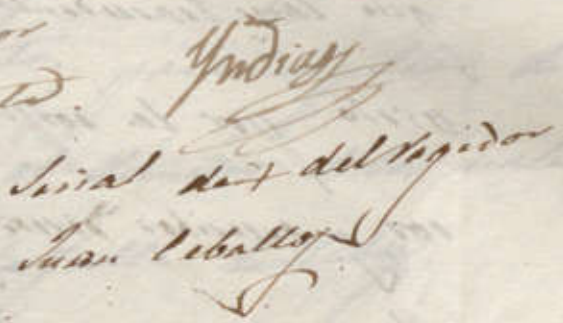 Yndias
Señal de + del regidor
Juan Ceballos